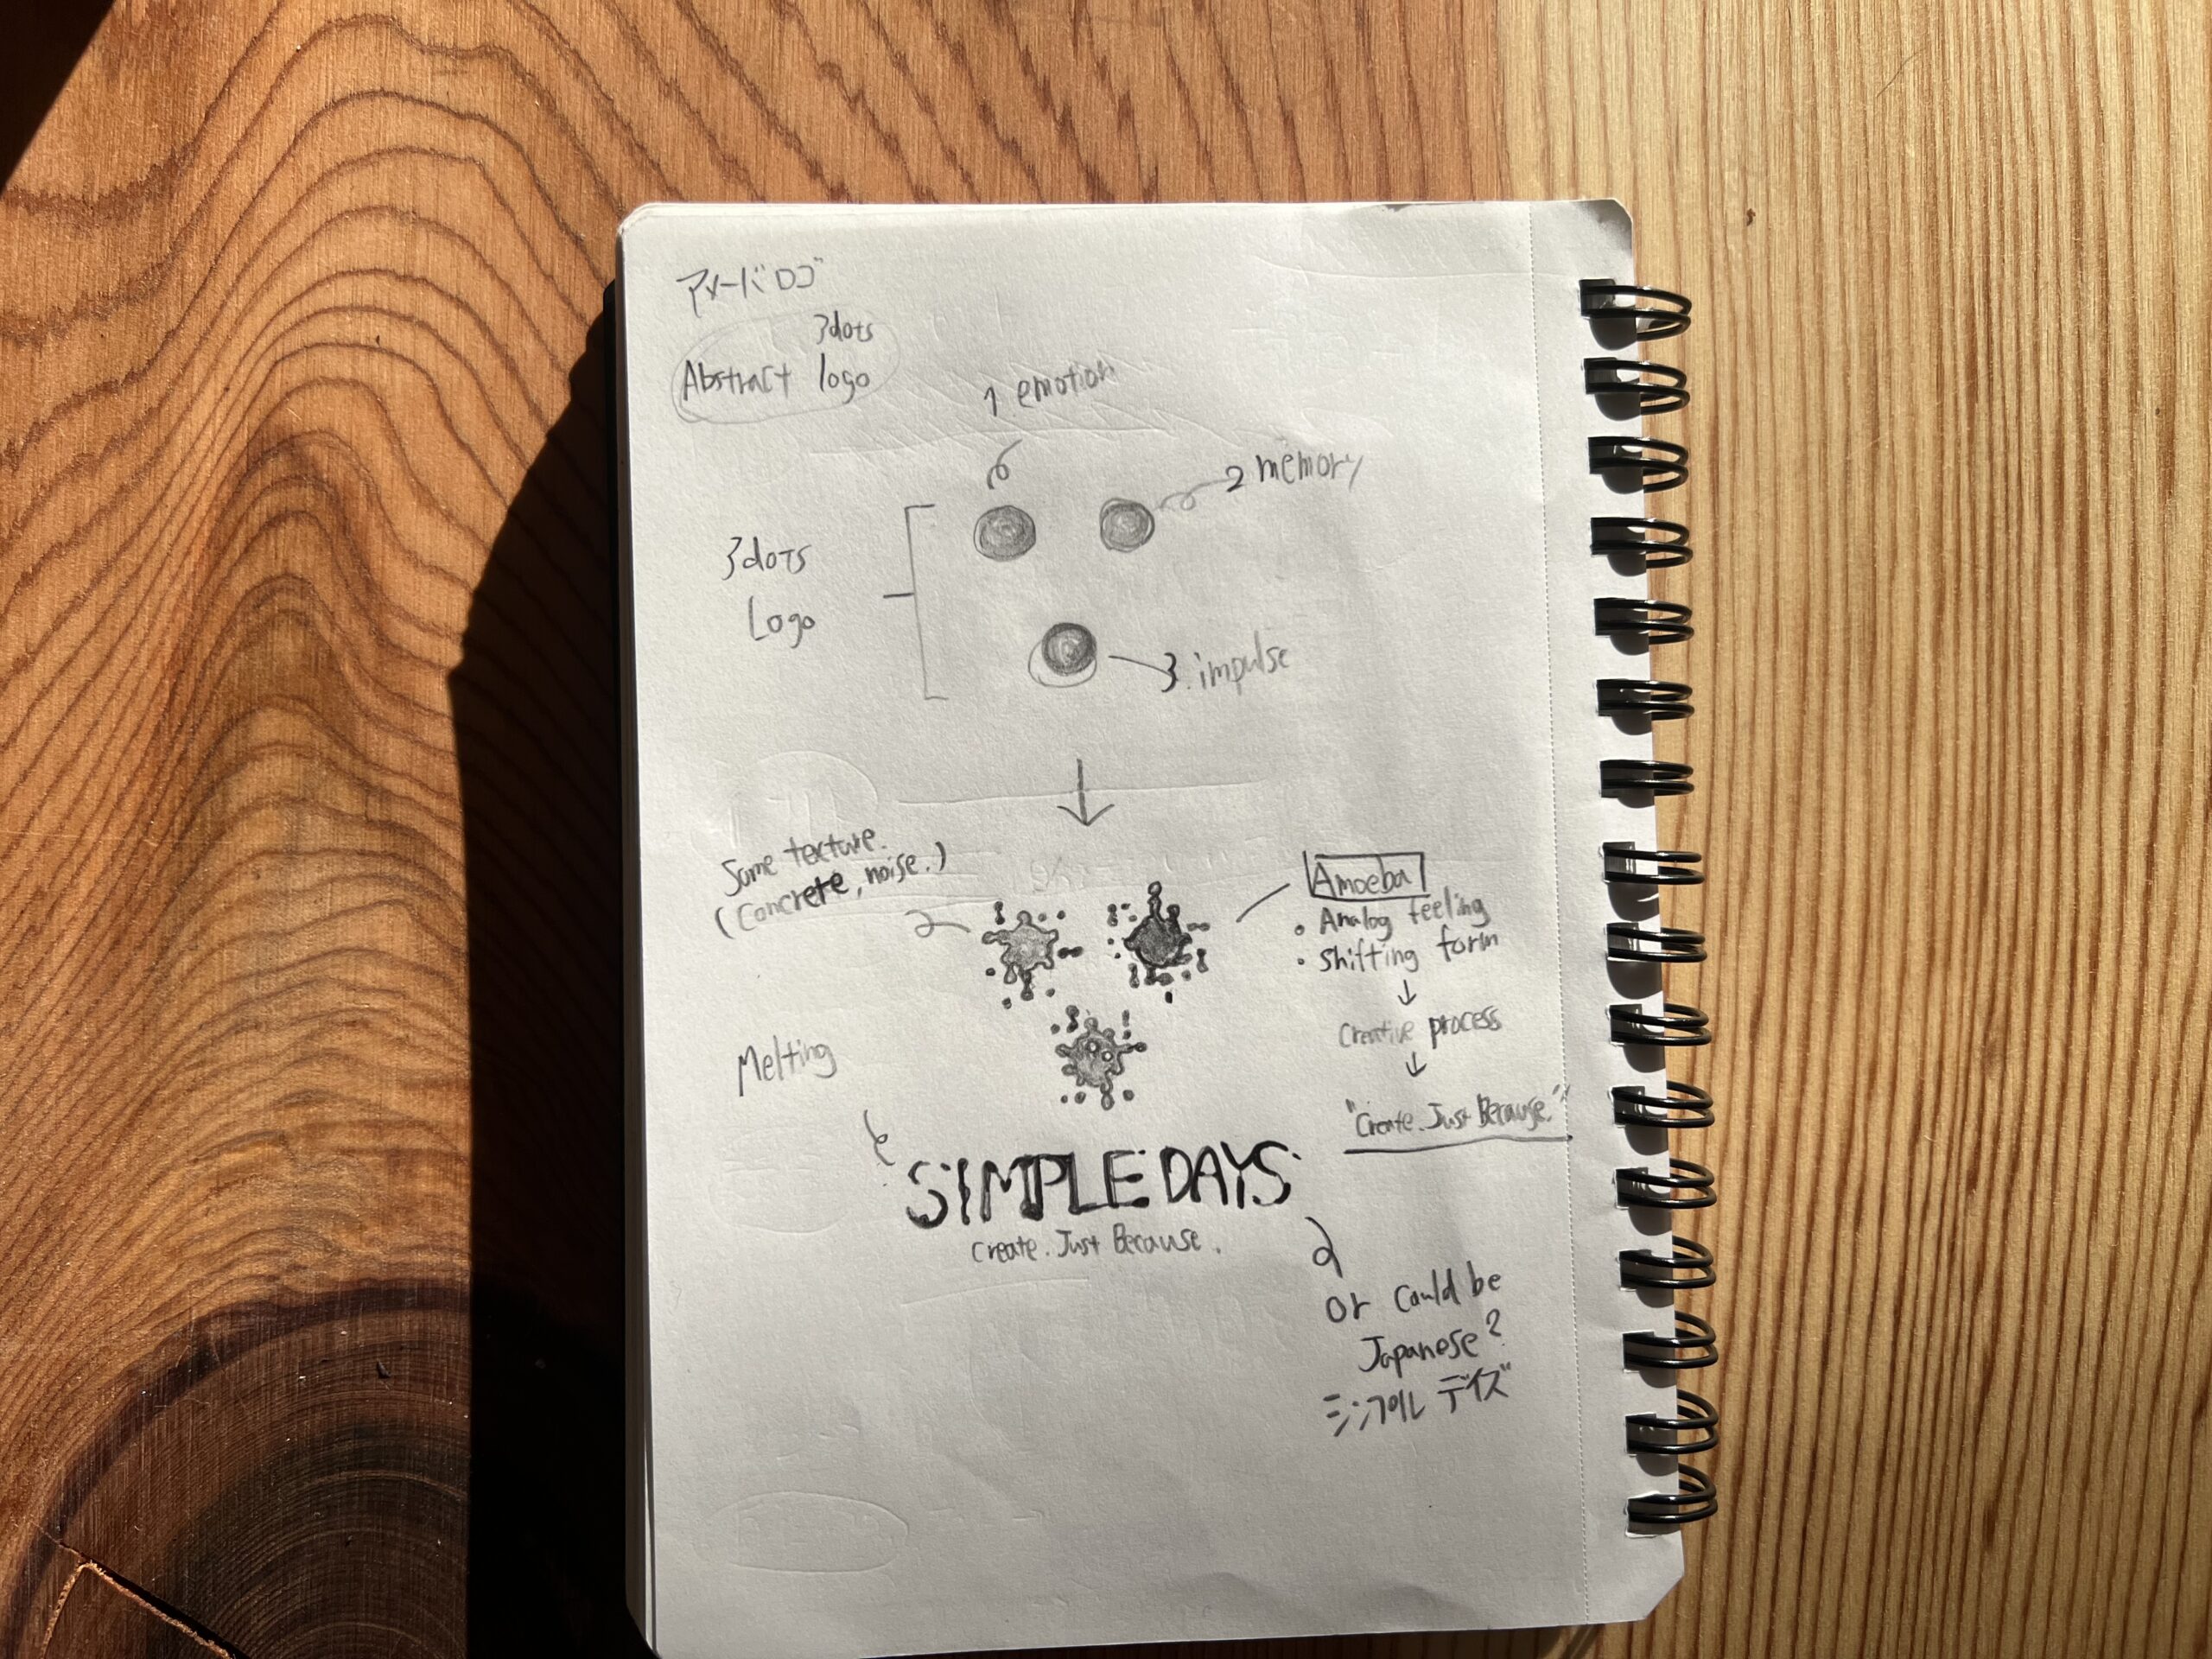 アメーバロゴ
3dots
Abstract logo
1 emotion
2 memory
3dots
Logo
3. impulse
Some texture.
(concrete, noise.)
Amoeba
• Analog feeling
• Shifting form
↓
Creative process
↓
"Create. Just Because."
Melting
SIMPLE DAYS
Create. Just Because.
Or Could be
Japanese?
シンプル デイズ